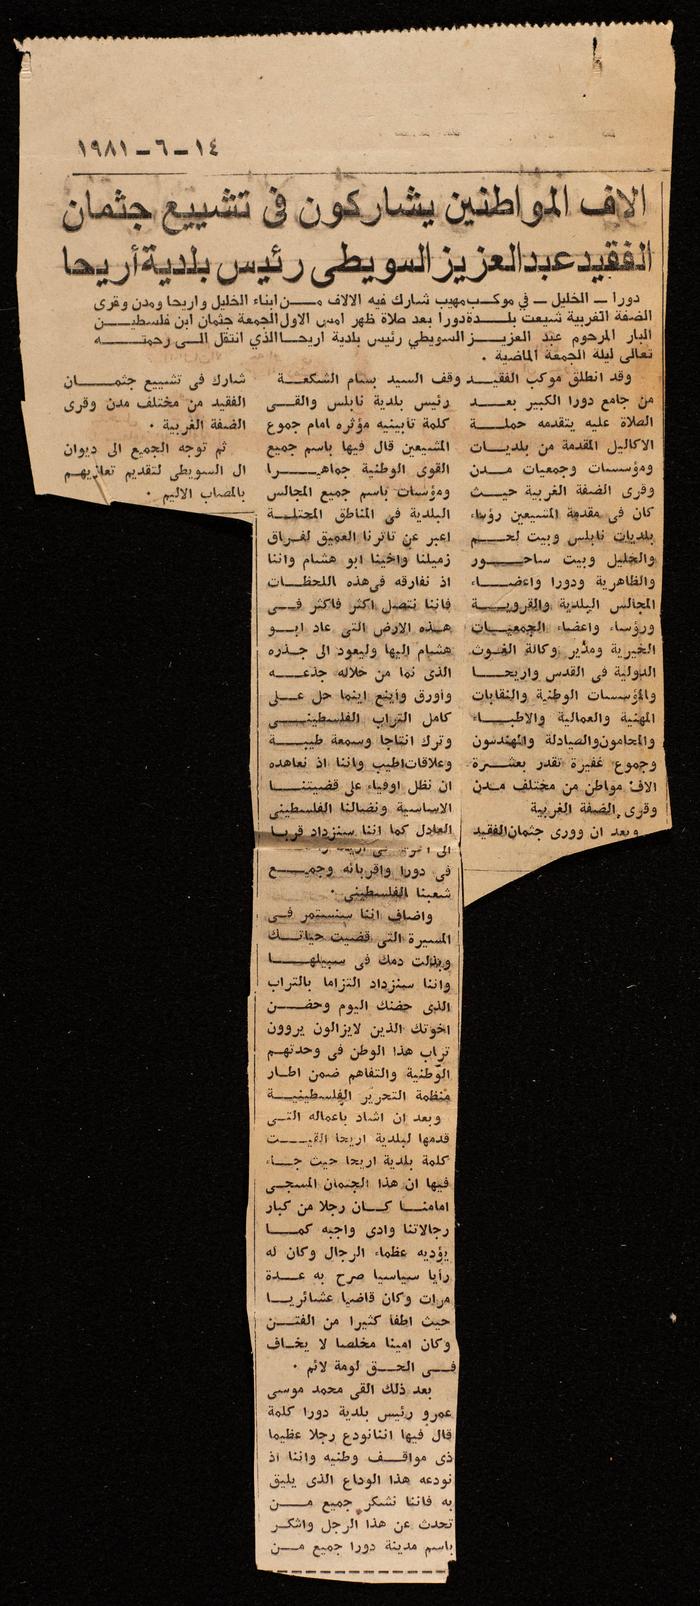 ١٤ - ٦ - ١٩٨١
الاف المواطنين يشاركون فى تشييع جثمان
الفقيد عبدالعزيز السويطى رئيس بلدية أريحا
دورا ــ الخليل ــ في موكب مهيب شارك فيه الالاف من ابناء الخليل واريحا ومدن وقرى
الضفة الغربية شيعت بلدة دورا بعد صلاة ظهر امس الاول الجمعة جثمان ابن فلسطين
البار المرحوم عبد العزيز السويطي رئيس بلدية اريحا الذي انتقل الى رحمته
تعالى ليلة الجمعة الماضية .
وقد انطلق موكب الفقيد
من جامع دورا الكبير بعد
الصلاة عليه يتقدمه حملة
الاكاليل المقدمة من بلديات
ومؤسسات وجمعيات مدن
وقرى الضفة الغربية حيث
كان فى مقدمة المشيعين رؤساء
بلديات نابلس وبيت لحم
والخليل وبيت ساحور
والظاهرية ودورا واعضاء
المجالس البلدية والقروية
ورؤساء واعضاء الجمعيات
الخيرية ومدير وكالة الغوث
الدولية فى القدس واريحا
والمؤسسات الوطنية والنقابات
المهنية والعمالية والاطباء
والمحامون والصيادلة والمهندسون
وجموع غفيرة تقدر بعشرة
الاف مواطن من مختلف مدن
وقرى الضفة الغربية
وبعد ان وورى جثمان الفقيد
وقف السيد بسام الشكعة
رئيس بلدية نابلس والقى
كلمة تأبينيه مؤثره امام جموع
المشيعين قال فيها باسم جميع
القوى الوطنية جماهيرا
ومؤسسات باسم جميع المجالس
البلدية فى المناطق المحتلة
اعبر عن تاثرنا العميق لفراق
زميلنا واخينا ابو هشام واننا
اذ نفارقه فى هذه اللحظات
فاننا نتصل اكثر فاكثر فى
هذه الارض التى عاد ابو
هشام إليها وليعود الى جذره
الذى نما من خلاله جذعه
وأورق وأينع اينما حل على
كامل التراب الفلسطينى
وترك انتاجا وسمعة طيبة
وعلاقات اطيب واننا اذ نعاهده
ان نظل اوفياء على قضيتنا
الاساسية ونضالنا الفلسطينى
العادل كما اننا سنزداد قربا
الى
فى دورا واقربائه وجميع
شعبنا الفلسطينى .
واضاف اننا سنستمر فى
المسيرة التى قضيت حياتك
وبذلت دمك فى سبيلها
واننا سنزداد التزاما بالتراب
الذى حضنك اليوم وحضن
اخوتك الذين لايزالون يروون
تراب هذا الوطن فى وحدتهم
الوطنية والتفاهم ضمن اطار
منظمة التحرير الفلسطينية
وبعد ان اشاد باعماله التى
قدمها لبلدية اريحا القيت
كلمة بلدية اريحا حيث جاء
فيها ان هذا الجثمان المسجى
امامنا كان رجلا من كبار
رجالاتنا وادى واجبه كما
يؤديه عظماء الرجال وكان له
رأيا سياسيا صرح به عدة
مرات وكان قاضيا عشائريا
حيث اطفأ كثيرا من الفتن
وكان امينا مخلصا لا يخاف
فى الحق لومة لائم .
بعد ذلك القى محمد موسى
عمرو رئيس بلدية دورا كلمة
قال فيها اننا نودع رجلا عظيما
ذى مواقف وطنيه واننا اذ
نودعه هذا الوداع الذى يليق
به فاننا نشكر جميع من
تحدث عن هذا الرجل واشكر
باسم مدينة دورا جميع من
شارك فى تشييع جثمان
الفقيد من مختلف مدن وقرى
الضفة الغربية .
ثم توجه الجميع الى ديوان
ال السويطى لتقديم تعازيهم
بالمصاب الاليم .